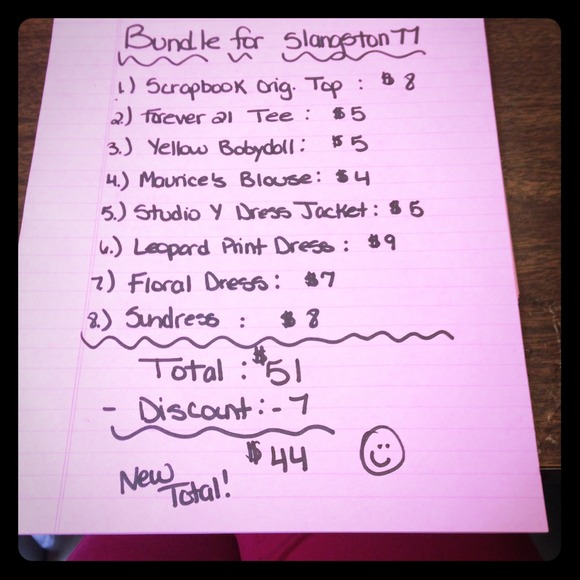 Bundle for slangston77
1.) Scrapbook Orig. Top : $8
2.) Forever 21 Tee : $5
3.) Yellow Babydoll : $5
4.) Maurice's Blouse : $4
5.) Studio Y Dress Jacket : $5
6.) Leopard Print Dress : $9
7.) Floral Dress : $7
8.) Sundress : $8
Total : $51
- Discount : - 7
$44
New
Total!